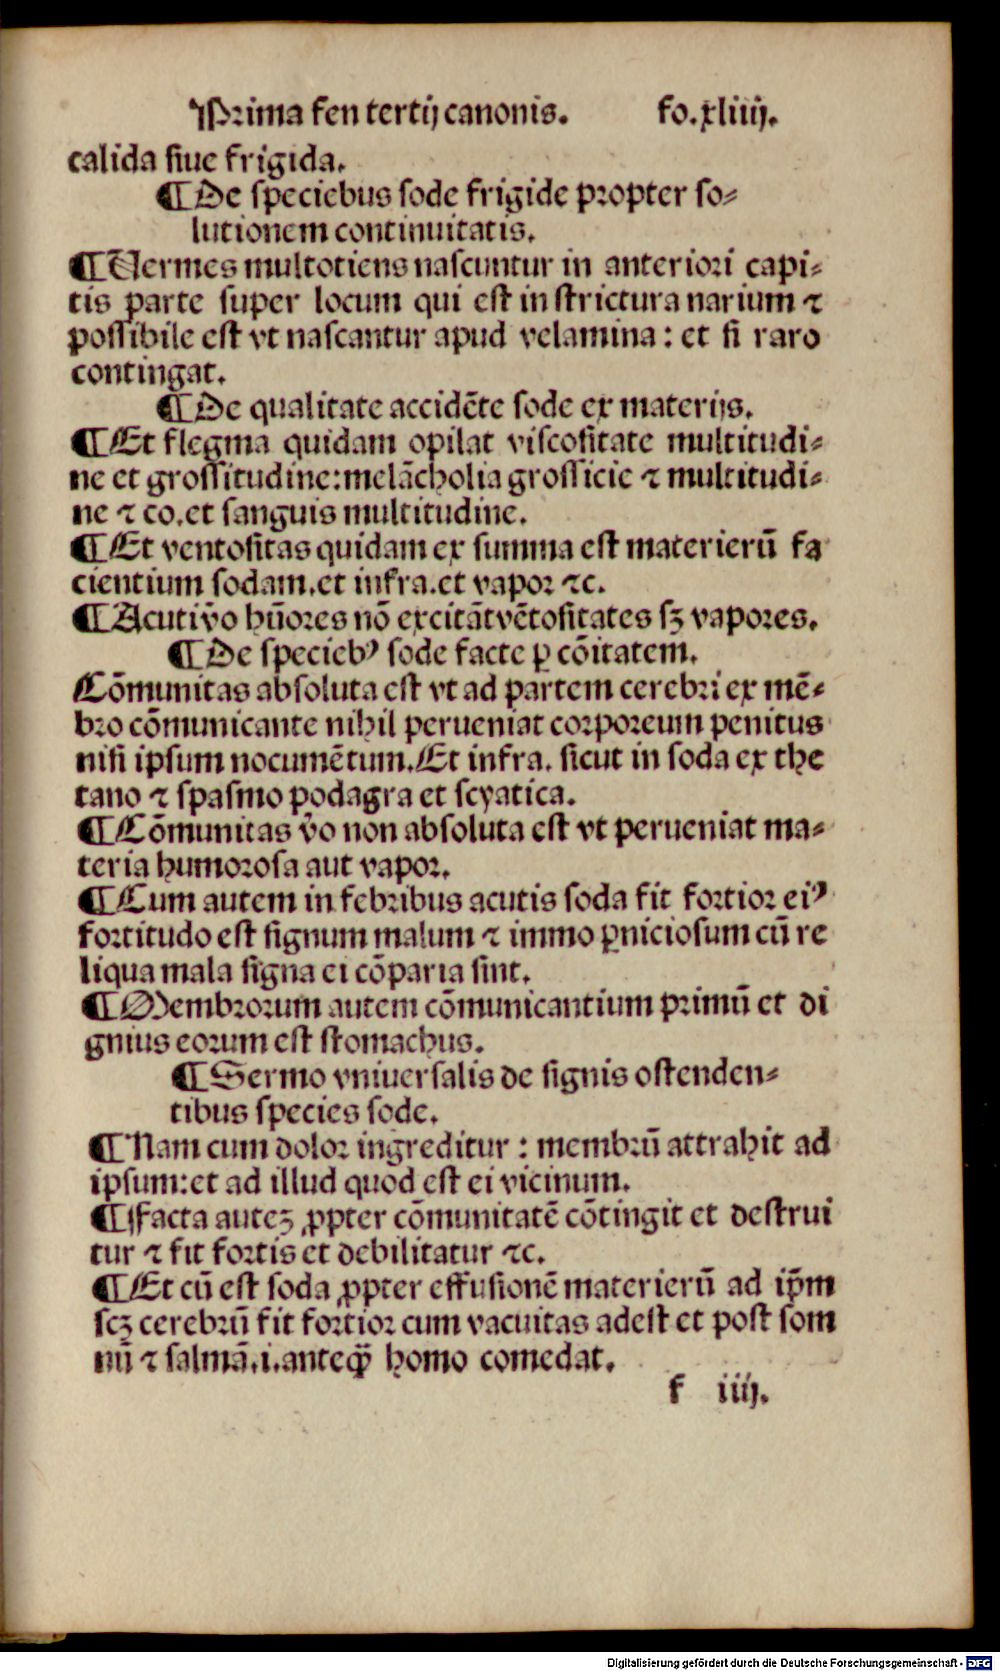 Prima fen tertij canonis. fo.xliiij.
calida siue frigida.
¶De speciebus sode frigide propter so⸗
lutionem continuitatis.
¶Vermes multotiens nascuntur in anteriori capi⸗
tis parte super locum qui est in strictura narium ⁊
possibile est vt nascantur apud velamina: et si raro
contingat.
¶De qualitate accidẽte sode ex materijs.
¶Et flegma quidam opilat viscositate multitudi⸗
ne et grossitudine: melãcholia grossicie ⁊ multitudi⸗
ne ⁊ co.et sanguis multitudine.
¶Et ventositas quidam ex summa est materierũ fa
cientium sodam.et infra.et vapor ⁊c.
¶Acuti ṽo hũores nõ excitãt vẽtositates sꝫ vapores.
¶De speciebꝰ sode facte ꝑ cõitatem.
Cõmunitas absoluta est vt ad partem cerebri ex mẽ⸗
bro cõmunicante nihil perueniat corporeum penitus
nisi ipsum nocumẽtum.Et infra. sicut in soda ex the
tano ⁊ spasmo podagra et scyatica.
¶Cõmunitas ṽo non absoluta est vt perueniat ma⸗
teria humorosa aut vapor.
¶Cum autem in febribus acutis soda fit fortior eiꝰ
fortitudo est signum malum ⁊ immo ꝑniciosum cũ re
liqua mala signa ei cõparia sint.
¶Membrorum autem cõmunicantium primũ et di
gnius eorum est stomachus.
¶Sermo vniuersalis de signis ostenden⸗
tibus species sode.
¶Nam cum dolor ingreditur : membrũ attrahit ad
ipsum:et ad illud quod est ei vicinum.
¶Facta auteꝫ ꝓpter cõmunitatẽ cõtingit et destrui
tur ⁊ fit fortis et debilitatur ⁊c.
¶Et cũ est soda ꝓpter effusionẽ materierũ ad ip̃m
scꝫ cerebrũ fit fortior cum vacuitas adest et post som
nũ ⁊ salmã.i.anteq̃ homo comedat.
f iiij.
Digitalisierung gefördert durch die Deutsche Forschungsgemeinschaft - DFG